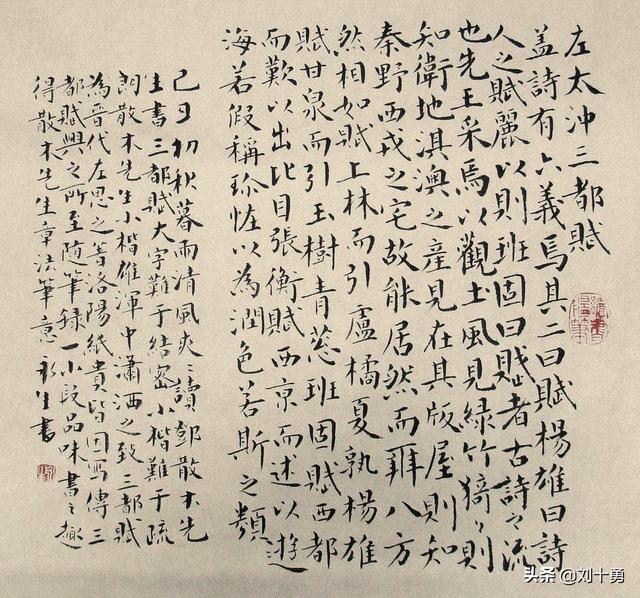 左太沖三都賦
蓋詩有六義焉其二曰賦楊雄曰詩
人之賦麗以則班固曰賦者古詩之流
也先王采焉以觀土風見綠竹猗々則
知衛地淇澳之產見在其版屋則知
秦野西戎之宅故能居然而辨八方
然相如賦上林而引盧橘夏孰楊雄
賦甘泉而引玉樹青蔥班固賦西都
而歎以出比目張衡賦西京而述以遊
海若假稱珍怪以為潤色若斯之類
己丑初秋暮雨清風爽々讀鄧散木先
生書三都賦大字難于結密小楷難于疏
朗散木先生小楷雄渾中瀟洒之致三都賦
為晉代左思之著洛陽紙貴皆因寫傳三
都賦興之所至随筆録一小段品味書之趣
得散木先生章法筆意 永生書
头条 @刘十勇